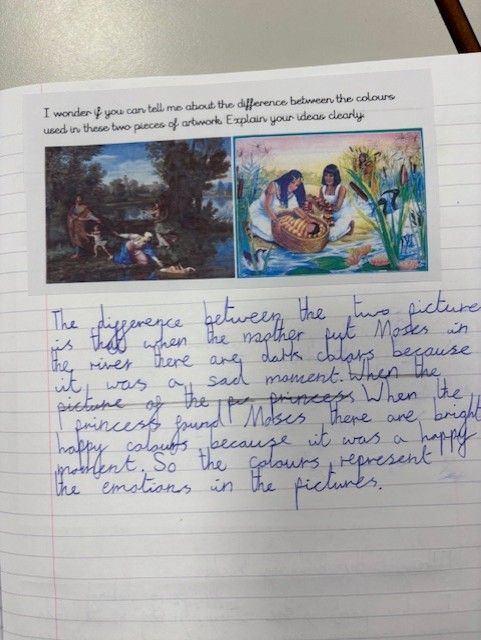 I wonder if you can tell me about the difference between the colours
used in these two pieces of artwork. Explain your ideas clearly.
The difference between the two picture
is that when the mother put Moses in
the river there are dark colors because
it was a sad moment. When the
picture of the princess When the
princess found Moses there are bright
happy colours because it was a happy
moment. So the colours represent
the emotions in the pictures.